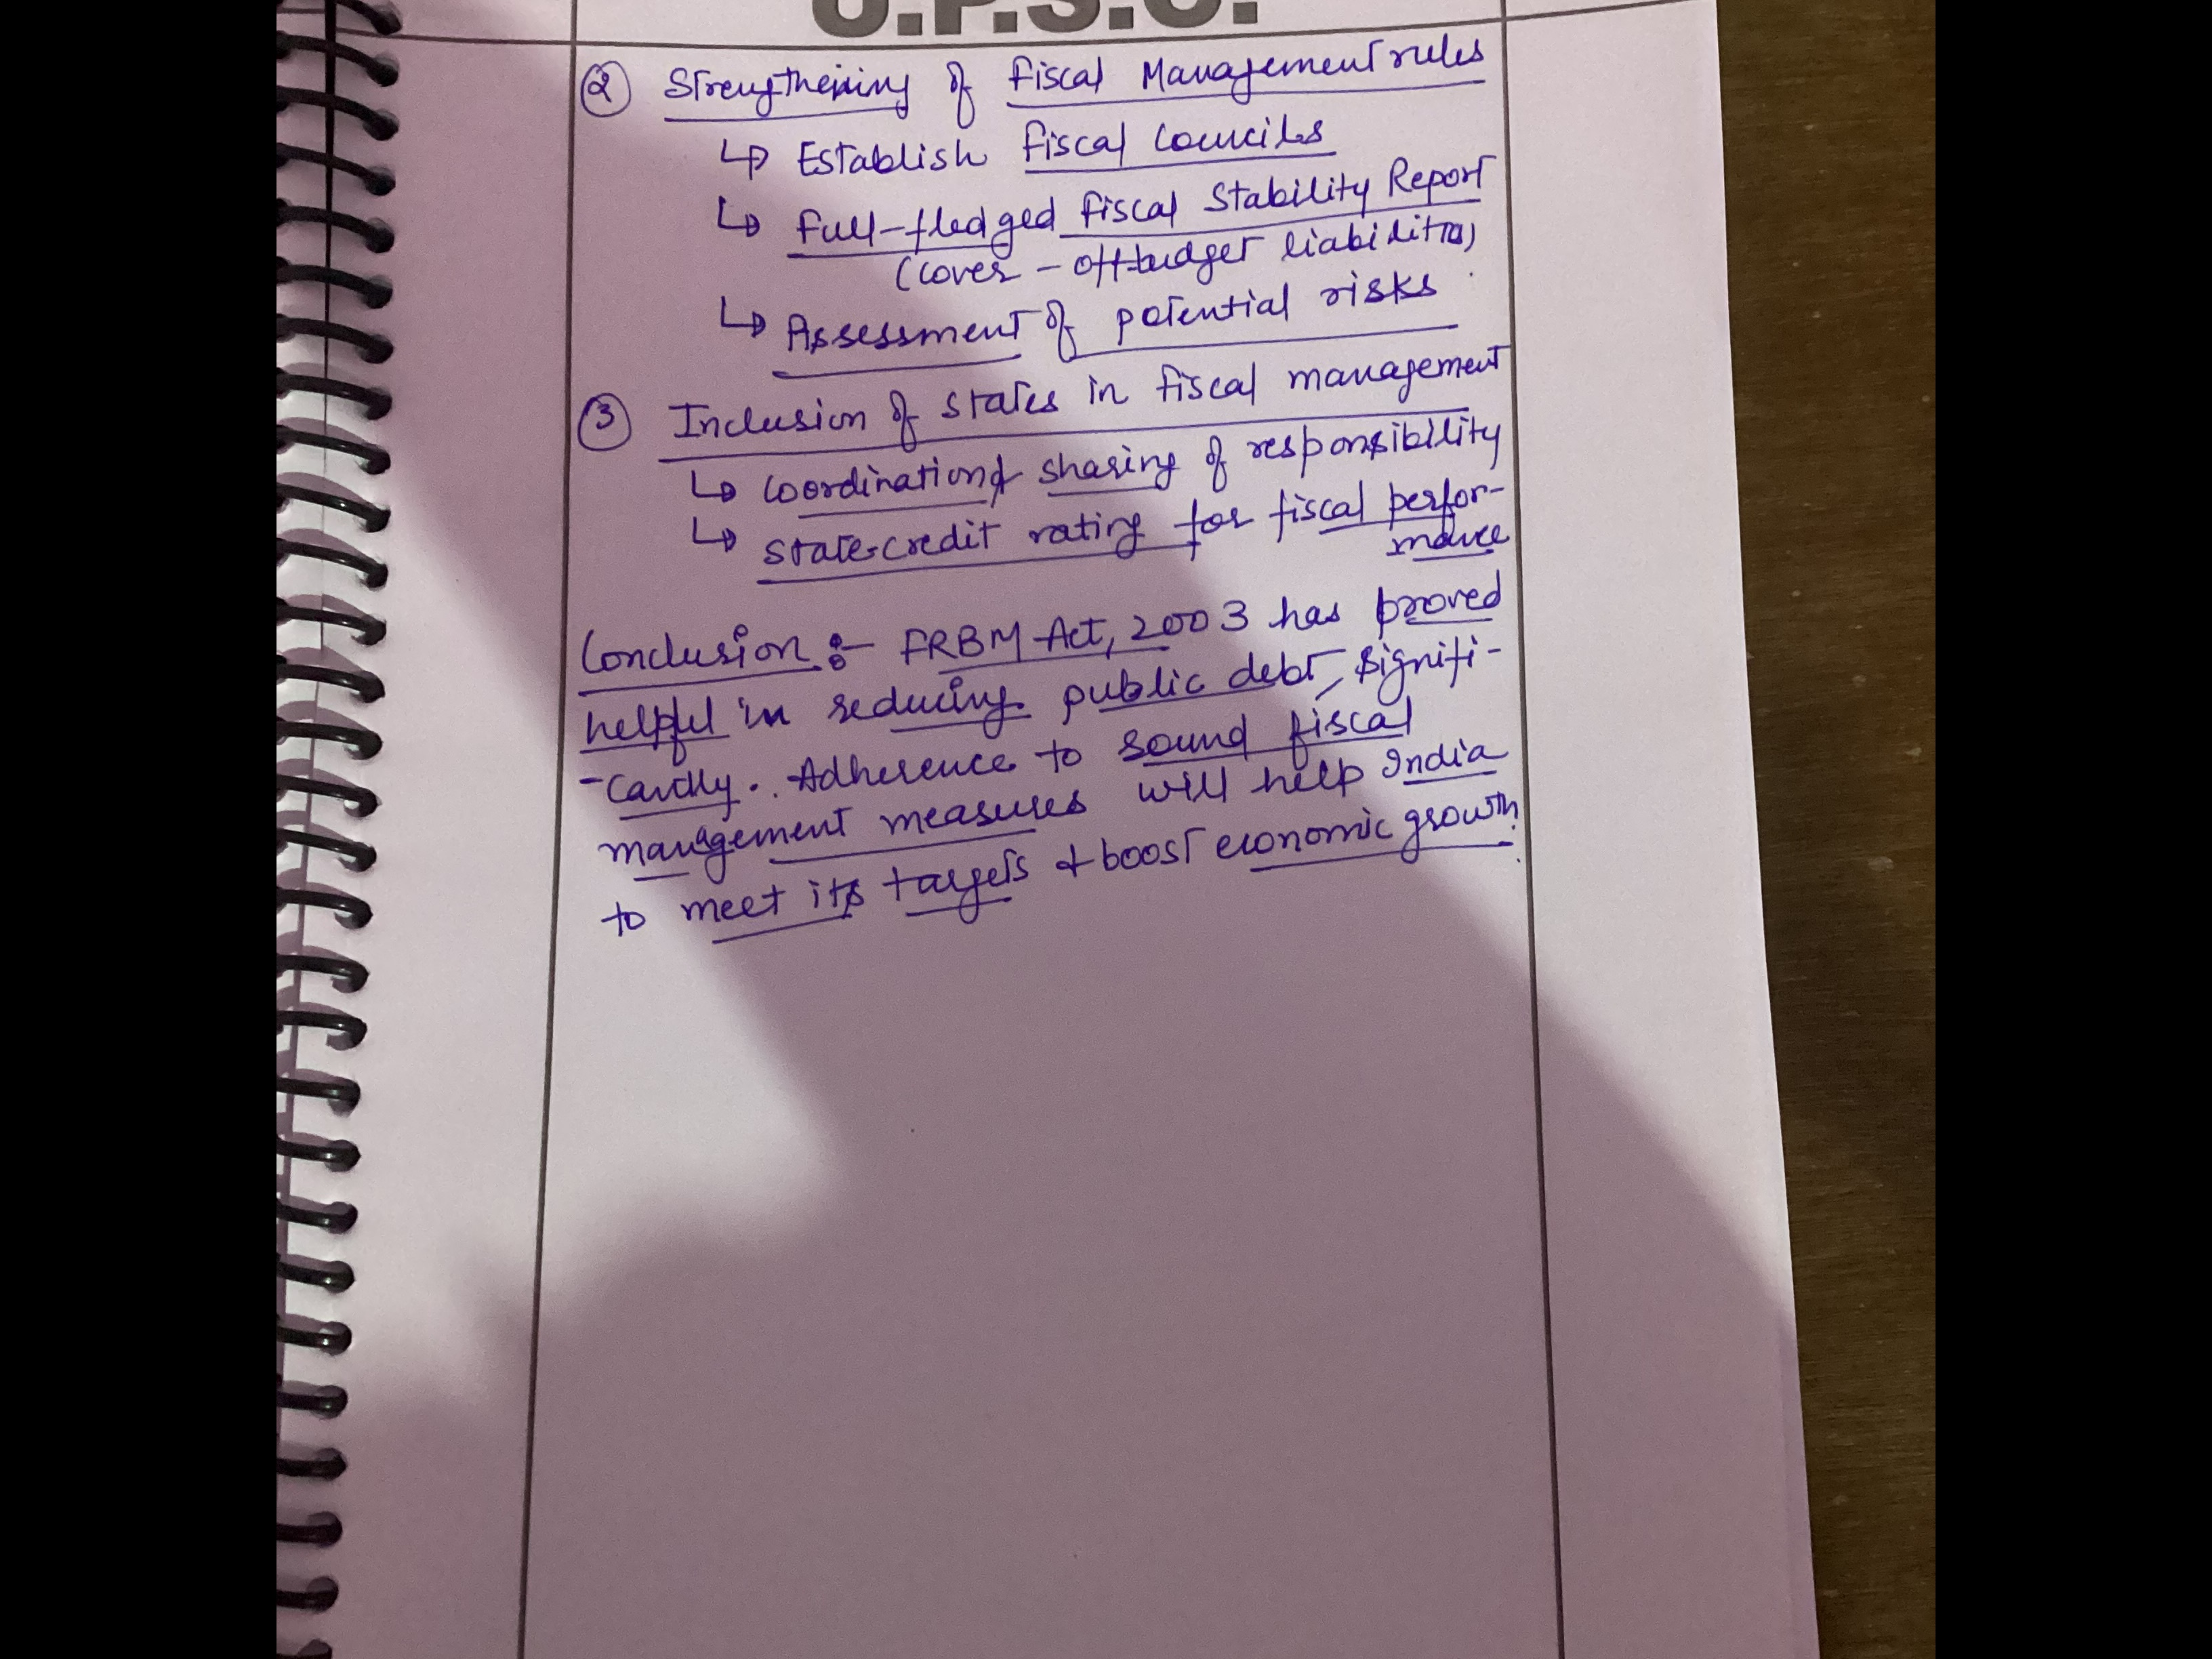 U.P.S.C.
② Strengthening of Fiscal Management rules
↳ Establish Fiscal Councils
↳ Full-fledged Fiscal Stability Report
(cover - off-budget liabilities)
↳ Assessment of potential risks
③ Inclusion of states in fiscal management
↳ Coordination & sharing of responsibility
↳ state-credit rating for fiscal perfor-
mance
Conclusion :- FRBM Act, 2003 has proved
helpful in reducing public debt, signifi-
-cantly. Adherence to sound fiscal
management measures will help India
to meet its targets & boost economic growth.